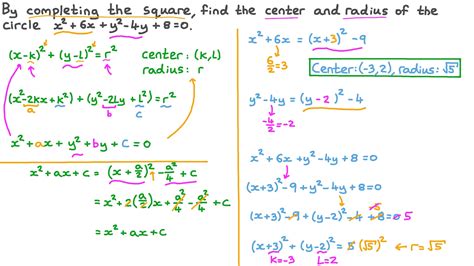 By completing the square, find the center and radius of the
circle x²+6x+y²-4y+8=0.
(x-k)²+(y-l)²=r²
center: (k,l)
radius: r
(x²-2kx+k²)+(y²-2ly+l²)=r²
a b c
x²+ax+y²+by+c=0
x²+ax+c = (x+a/2)²-a²/4+c
= x²+2(a/2)x+a²/4-a²/4+c
= x²+ax+c
x²+6x = (x+3)²-9
6/2=3
Center:(-3,2), radius:√5
y²-4y = (y-2)²-4
-4/2=-2
x²+6x+y²-4y+8=0
(x+3)²-9+y²-4y+8=0
(x+3)²-9+(y-2)²-4+8=0 5
-5
(x+3)²+(y-2)²=5 (√5)² ← r=√5
k=-3 l=2